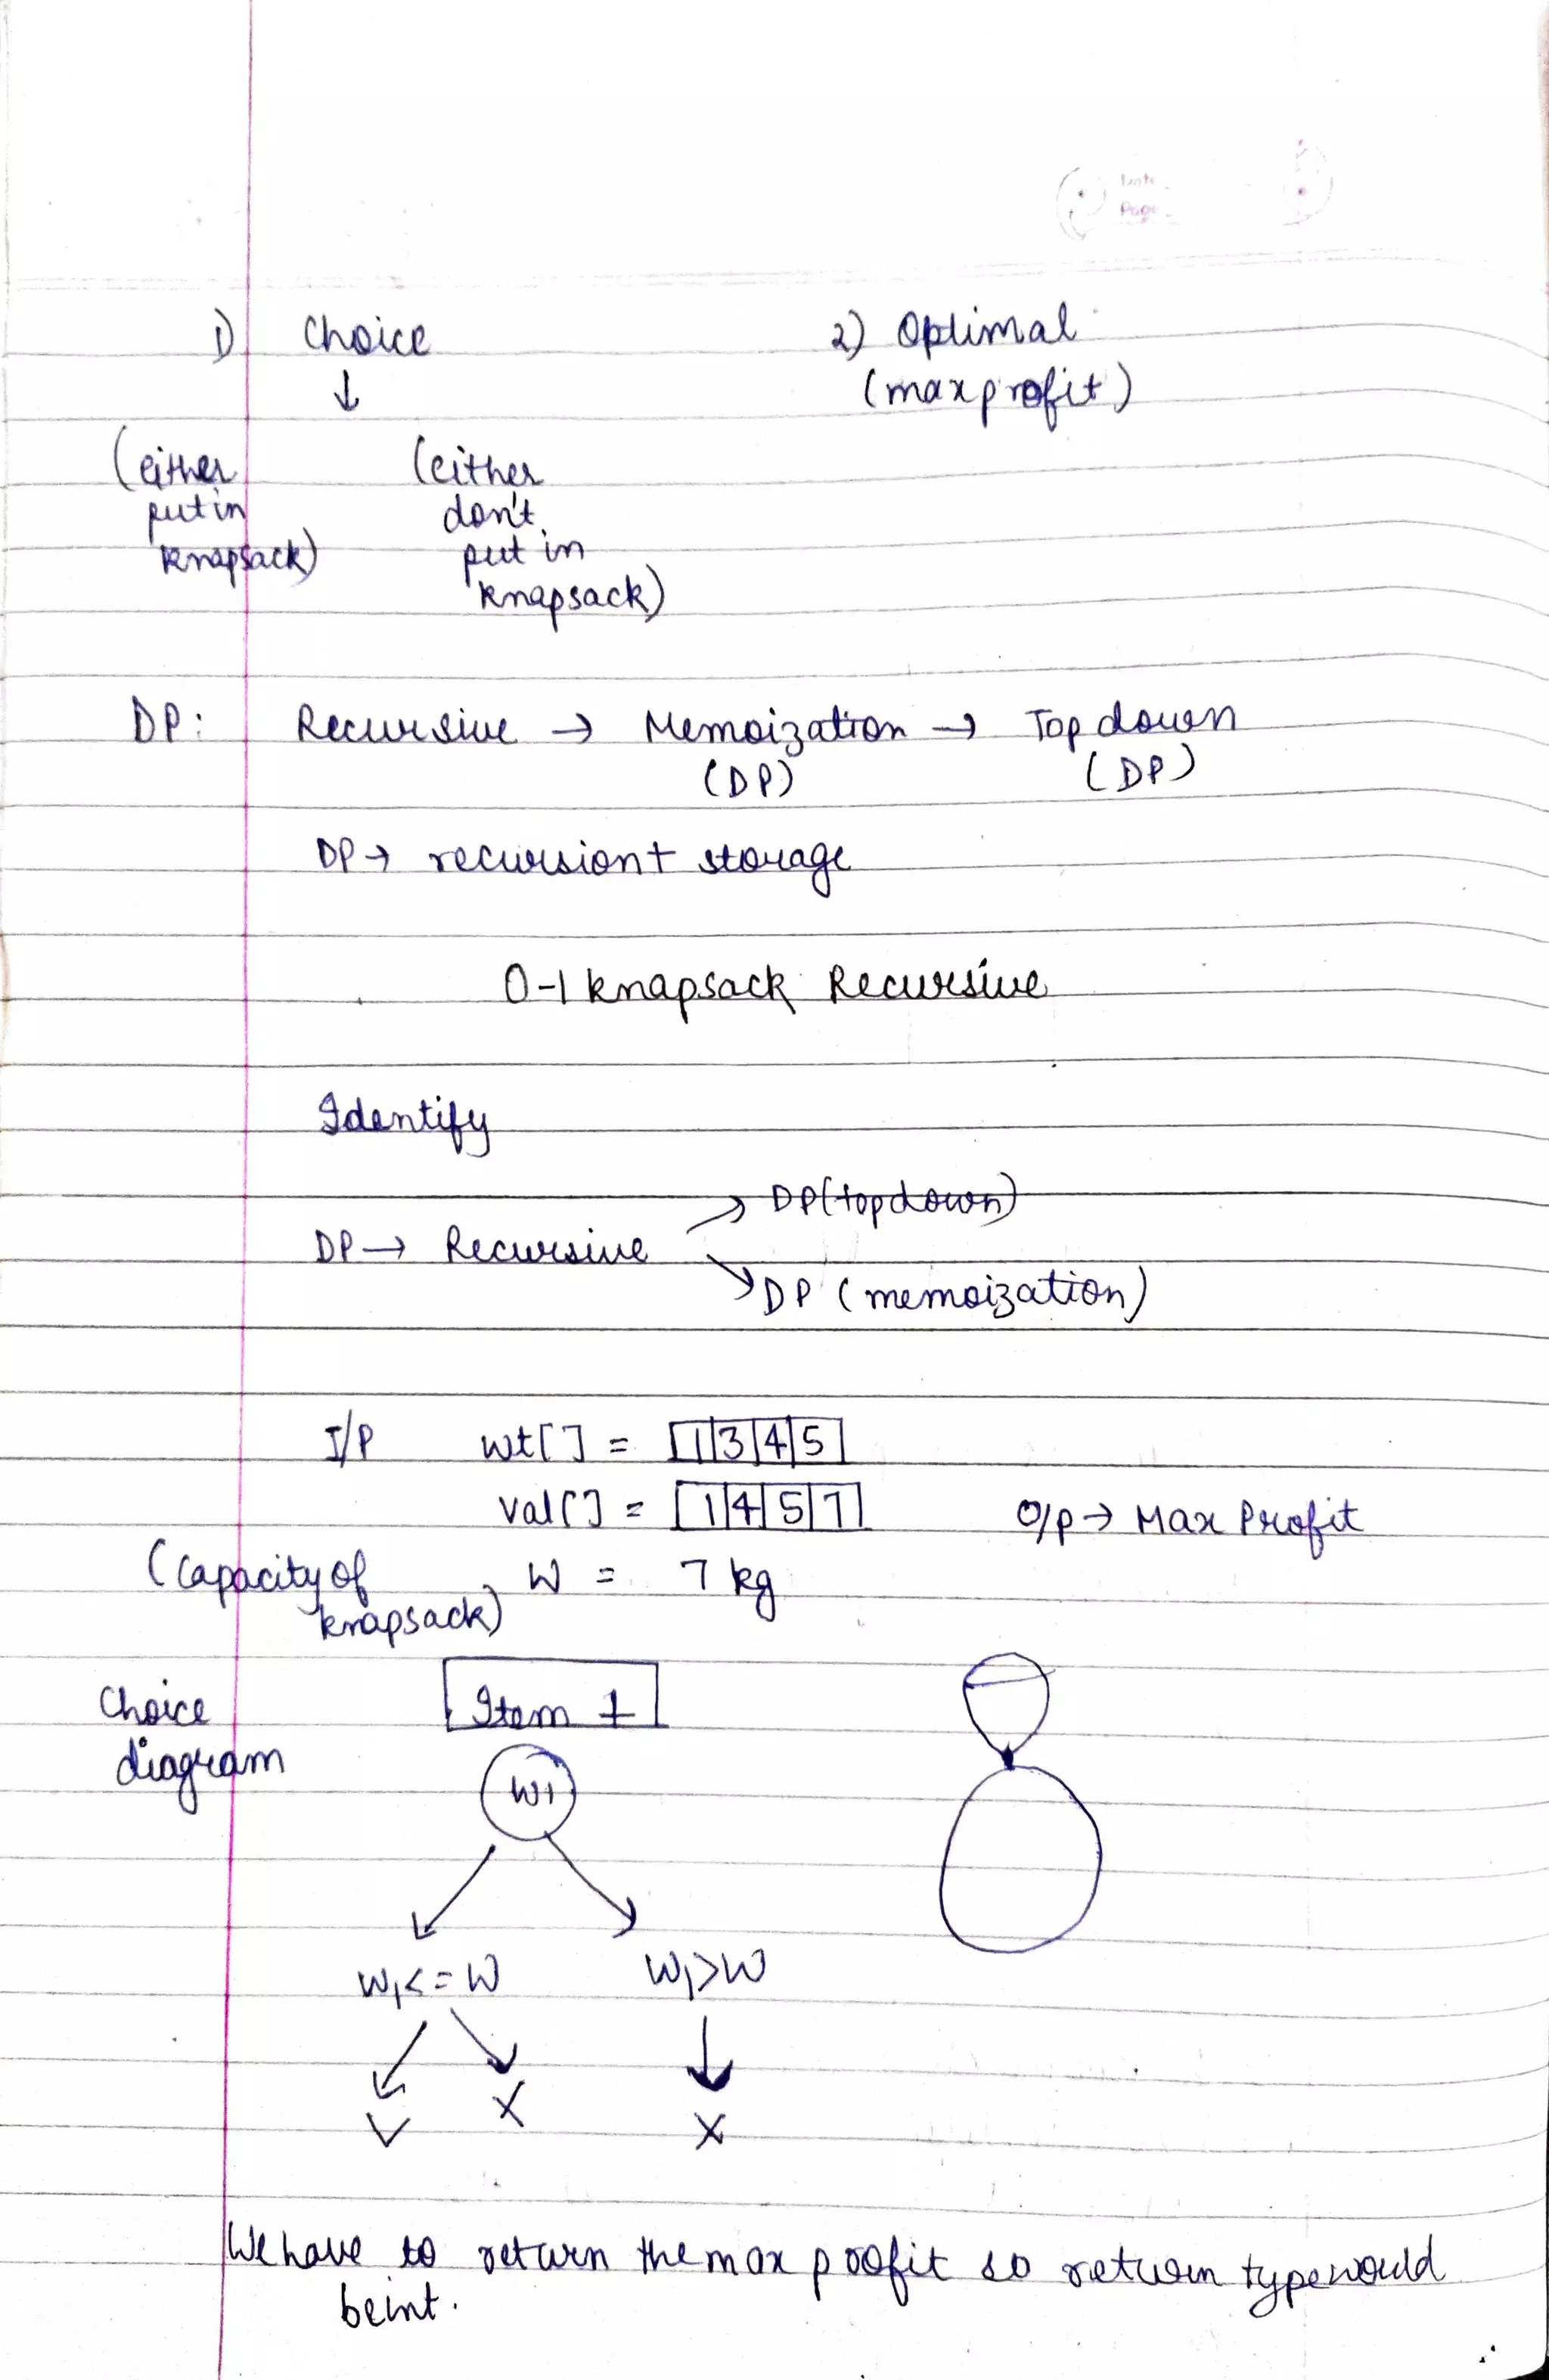 1) Choice 2) Optimal
↓ (max profit)
(either (either
put in don't
knapsack) put in
knapsack)
DP: Recursive → Memoization → Top down
(DP) (DP)
DP → recursion + storage
0-1 knapsack Recursive
Identify
DP (top down)
DP → Recursive
DP (memoization)
I/P wt[ ] = 1 3 4 5
val[ ] = 1 4 5 7 O/p → Max Profit
(Capacity of W = 7 kg
knapsack)
Choice Item 1
diagram
W1
W1 <= W W1 > W
✓ X X
We have to return the max profit so return type would
be int.